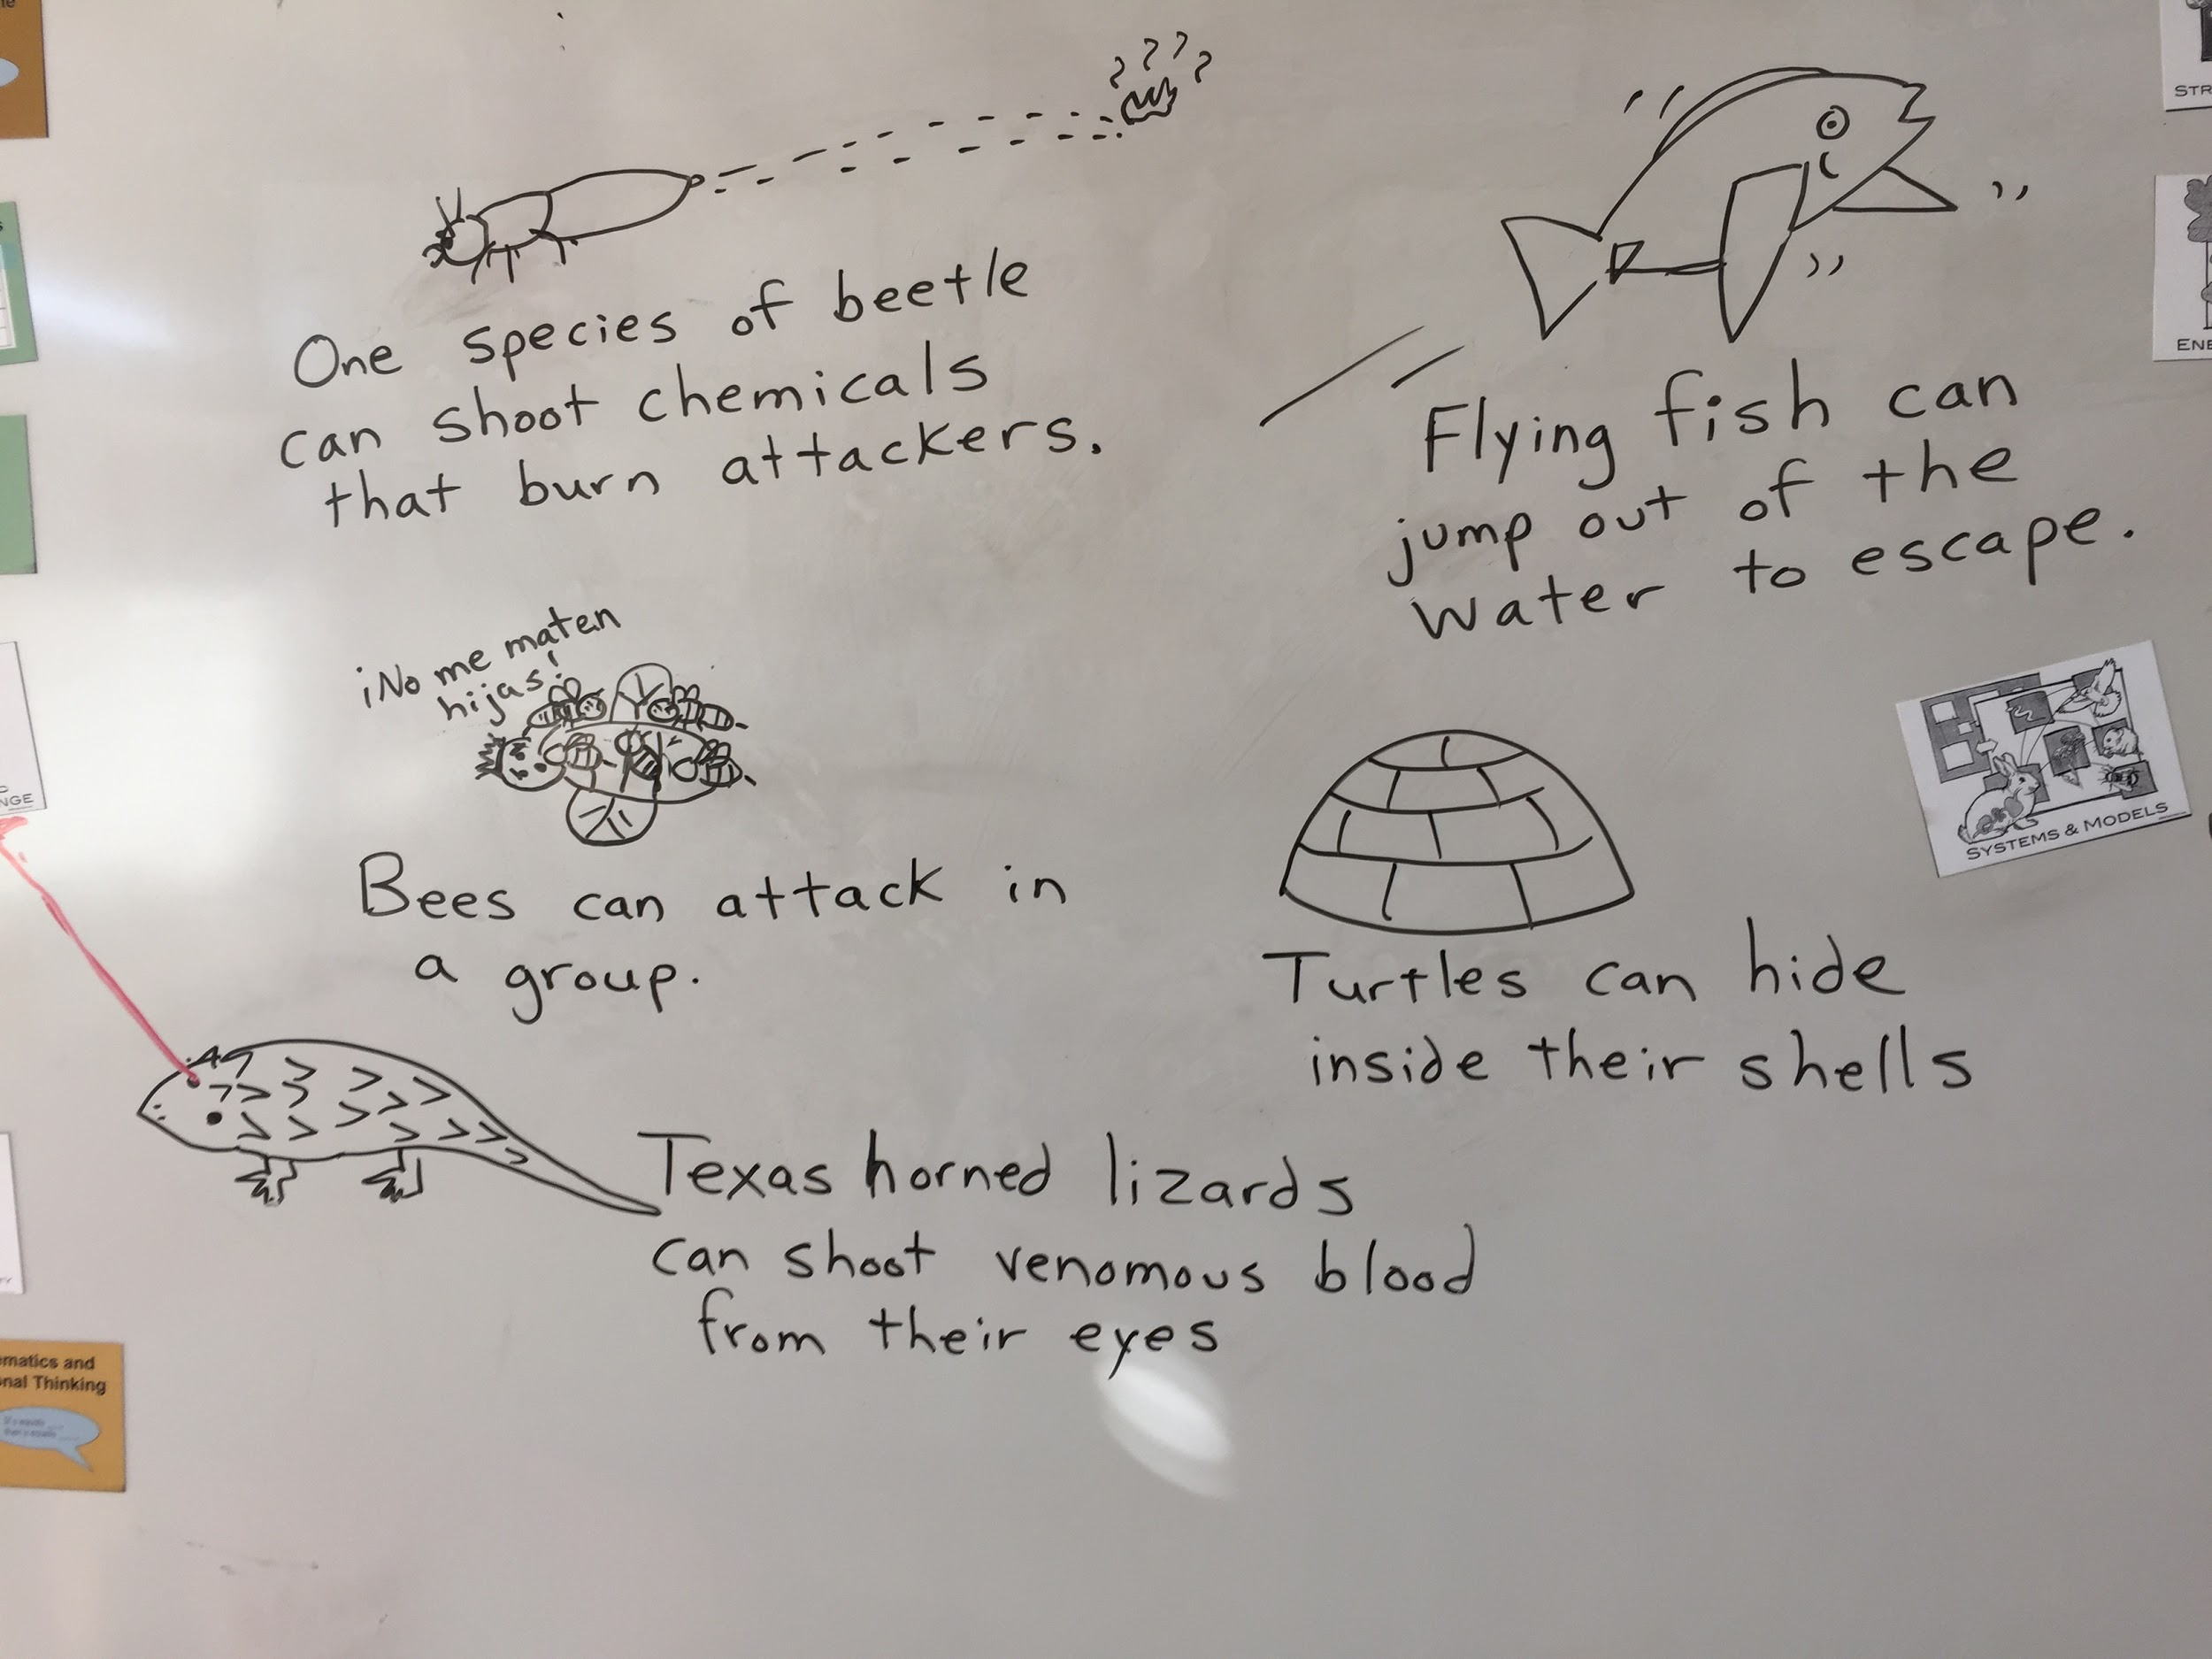 One species of beetle
can shoot chemicals
that burn attackers.
Flying fish can
jump out of the
water to escape.
¡No me maten
hijas!
Bees can attack in
a group.
Turtles can hide
inside their shells
Texas horned lizards
can shoot venomous blood
from their eyes
SYSTEMS & MODELS
STR
ENE
NGE
ematics and
onal Thinking